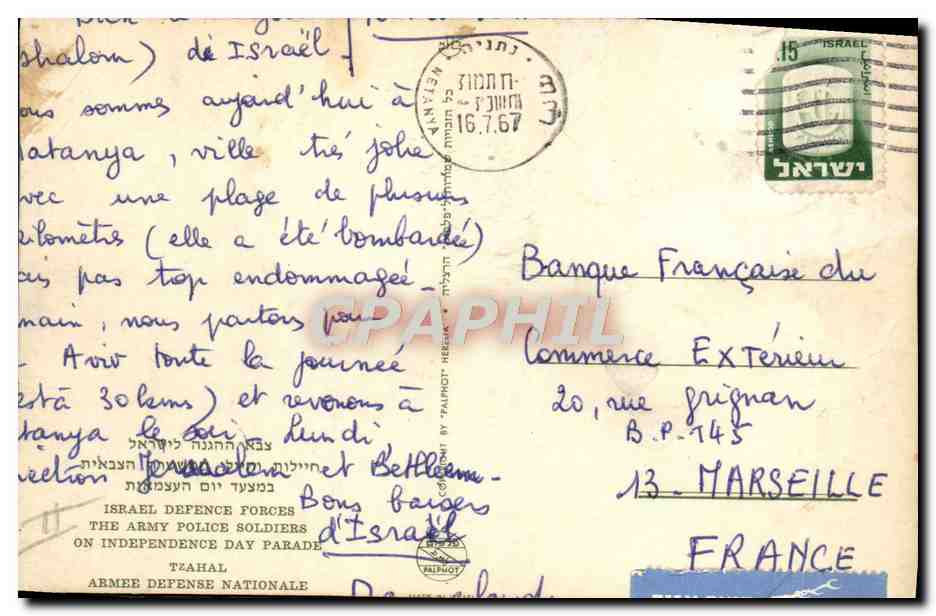 shalom) de ISRAËL
ous sommes aujourd'hui à
atanya, ville très jolie
vec une plage de plusieurs
kilomètres (elle a été bombardée)
ais pas trop endommagée_
main, nous partons pour
Aviv toute la journée
està 30 kms) et revenons à
tanya le soir_ Lundi,
rection Jérusalem et Bethleem_
Bons baisers
d'Israël
צבא ההגנה לישראל
חיילות
המשטרה הצבאית
במצעד יום העצמאות
ISRAEL DEFENCE FORCES
THE ARMY POLICE SOLDIERS
ON INDEPENDENCE DAY PARADE
TZAHAL
ARMEE DEFENSE NATIONALE
COPYRIGHT BY "PALPHOT" HERZLIA •
PALPHOT
נתניה
NETANYA
16.7.67
.15 ISRAEL
ישראל
Banque Française du
Commerce EXTérieur
20, rue grignan
B.P. 745
13_ MARSEILLE
FRANCE
CPAPHIL